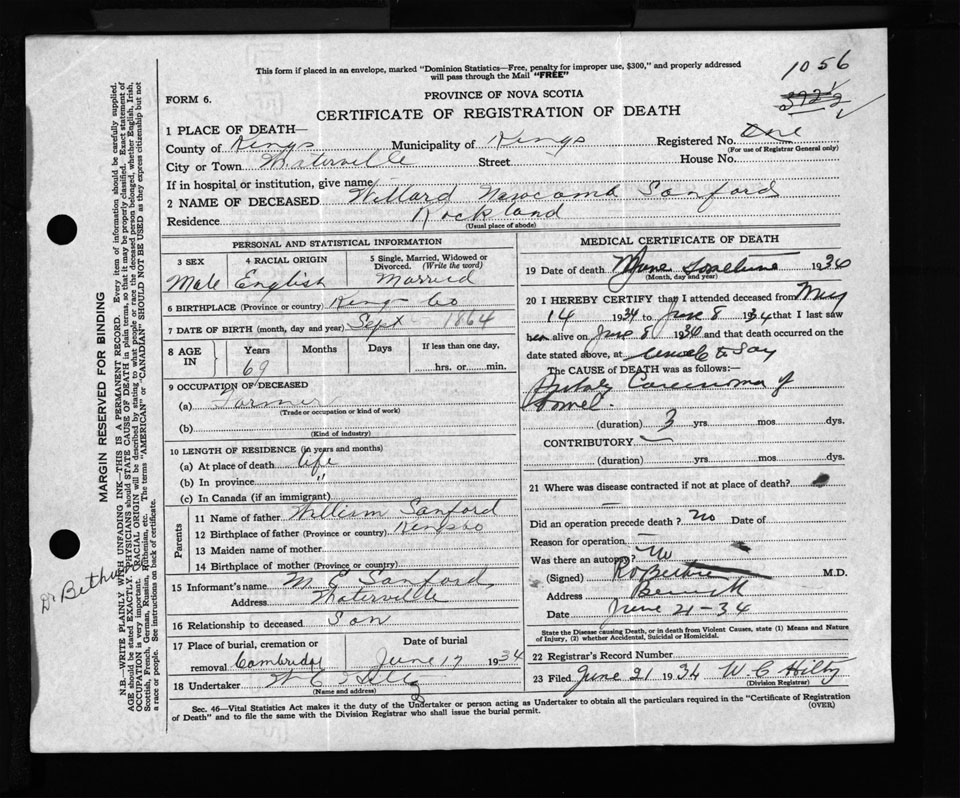 This form if placed in an envelope, marked "Dominion Statistics—Free, penalty for improper use, $300," and properly addressed
will pass through the Mail "FREE"
1056
FORM 6.
PROVINCE OF NOVA SCOTIA
CERTIFICATE OF REGISTRATION OF DEATH
1 PLACE OF DEATH—
County of Kings Municipality of Kings Registered No. One
(For use of Registrar General only)
City or Town Waterville Street House No.
If in hospital or institution, give name
2 NAME OF DECEASED Willard Newcomb Sanford
Residence Rockland
(Usual place of abode)
PERSONAL AND STATISTICAL INFORMATION
3 SEX 4 RACIAL ORIGIN 5 Single, Married, Widowed or
Divorced. (Write the word)
Male English Married
6 BIRTHPLACE (Province or country) Kings Co
7 DATE OF BIRTH (month, day and year) Sept 1864
8 AGE IN Years Months Days If less than one day,
69 hrs. or min.
9 OCCUPATION OF DECEASED
(a) Farmer
(Trade or occupation or kind of work)
(b)
(Kind of industry)
10 LENGTH OF RESIDENCE (in years and months)
(a) At place of death life
(b) In province "
(c) In Canada (if an immigrant)
Parents
11 Name of father William Sanford
12 Birthplace of father (Province or country) Kings Co
13 Maiden name of mother
14 Birthplace of mother (Province or country)
15 Informant's name M. E Sanford
Address Waterville
16 Relationship to deceased Son
17 Place of burial, cremation or Date of burial
removal Cambridge June 17 1934
18 Undertaker W C
(Name and address)
MEDICAL CERTIFICATE OF DEATH
19 Date of death June sometime 1934
(Month, day and year)
20 I HEREBY CERTIFY that I attended deceased from May
14 1934 to June 8 1934 that I last saw
him alive on June 8 1934 and that death occurred on
date stated above, at unable to say
The CAUSE of DEATH was as follows:—
Carcinoma of
bowel
(duration) 3 yrs. mos. dys.
CONTRIBUTORY —
(duration) yrs. mos. dys.
21 Where was disease contracted if not at place of death?
—
Did an operation precede death? no Date of
Reason for operation —
Was there an autopsy? no
(Signed) R. Bethune M.D.
Address Berwick
Date June 21-34
State the Disease causing Death, or in death from Violent Causes, state (1) Means and Nature
of Injury, (2) whether Accidental, Suicidal or Homicidal.
22 Registrar's Record Number
23 Filed June 21 1934 W C Hiltz
(Division Registrar)
Sec. 46—Vital Statistics Act makes it duty of the Undertaker or person acting as Undertaker to obtain all the particulars required in the "Certificate of Registration
of Death" and to file the same with the Division Registrar who shall issue the burial permit. (OVER)
MARGIN RESERVED FOR BINDING
N.B.—WRITE PLAINLY WITH UNFADING INK—THIS IS A PERMANENT RECORD. Every item of information should be carefully supplied.
AGE should be stated EXACTLY. PHYSICIANS should STATE CAUSE OF DEATH in plain terms, so that it may be properly classified. Exact statement of
OCCUPATION is very important. (RACIAL ORIGIN will be described by stating to what people or race the deceased person belonged, whether English, Irish,
Scottish, French, German, Russian, Ruthenian, etc. The terms "AMERICAN" or "CANADIAN" SHOULD NOT BE USED as they express citizenship but not
a race or people. See instructions on back of certificate.
Dr Bethune